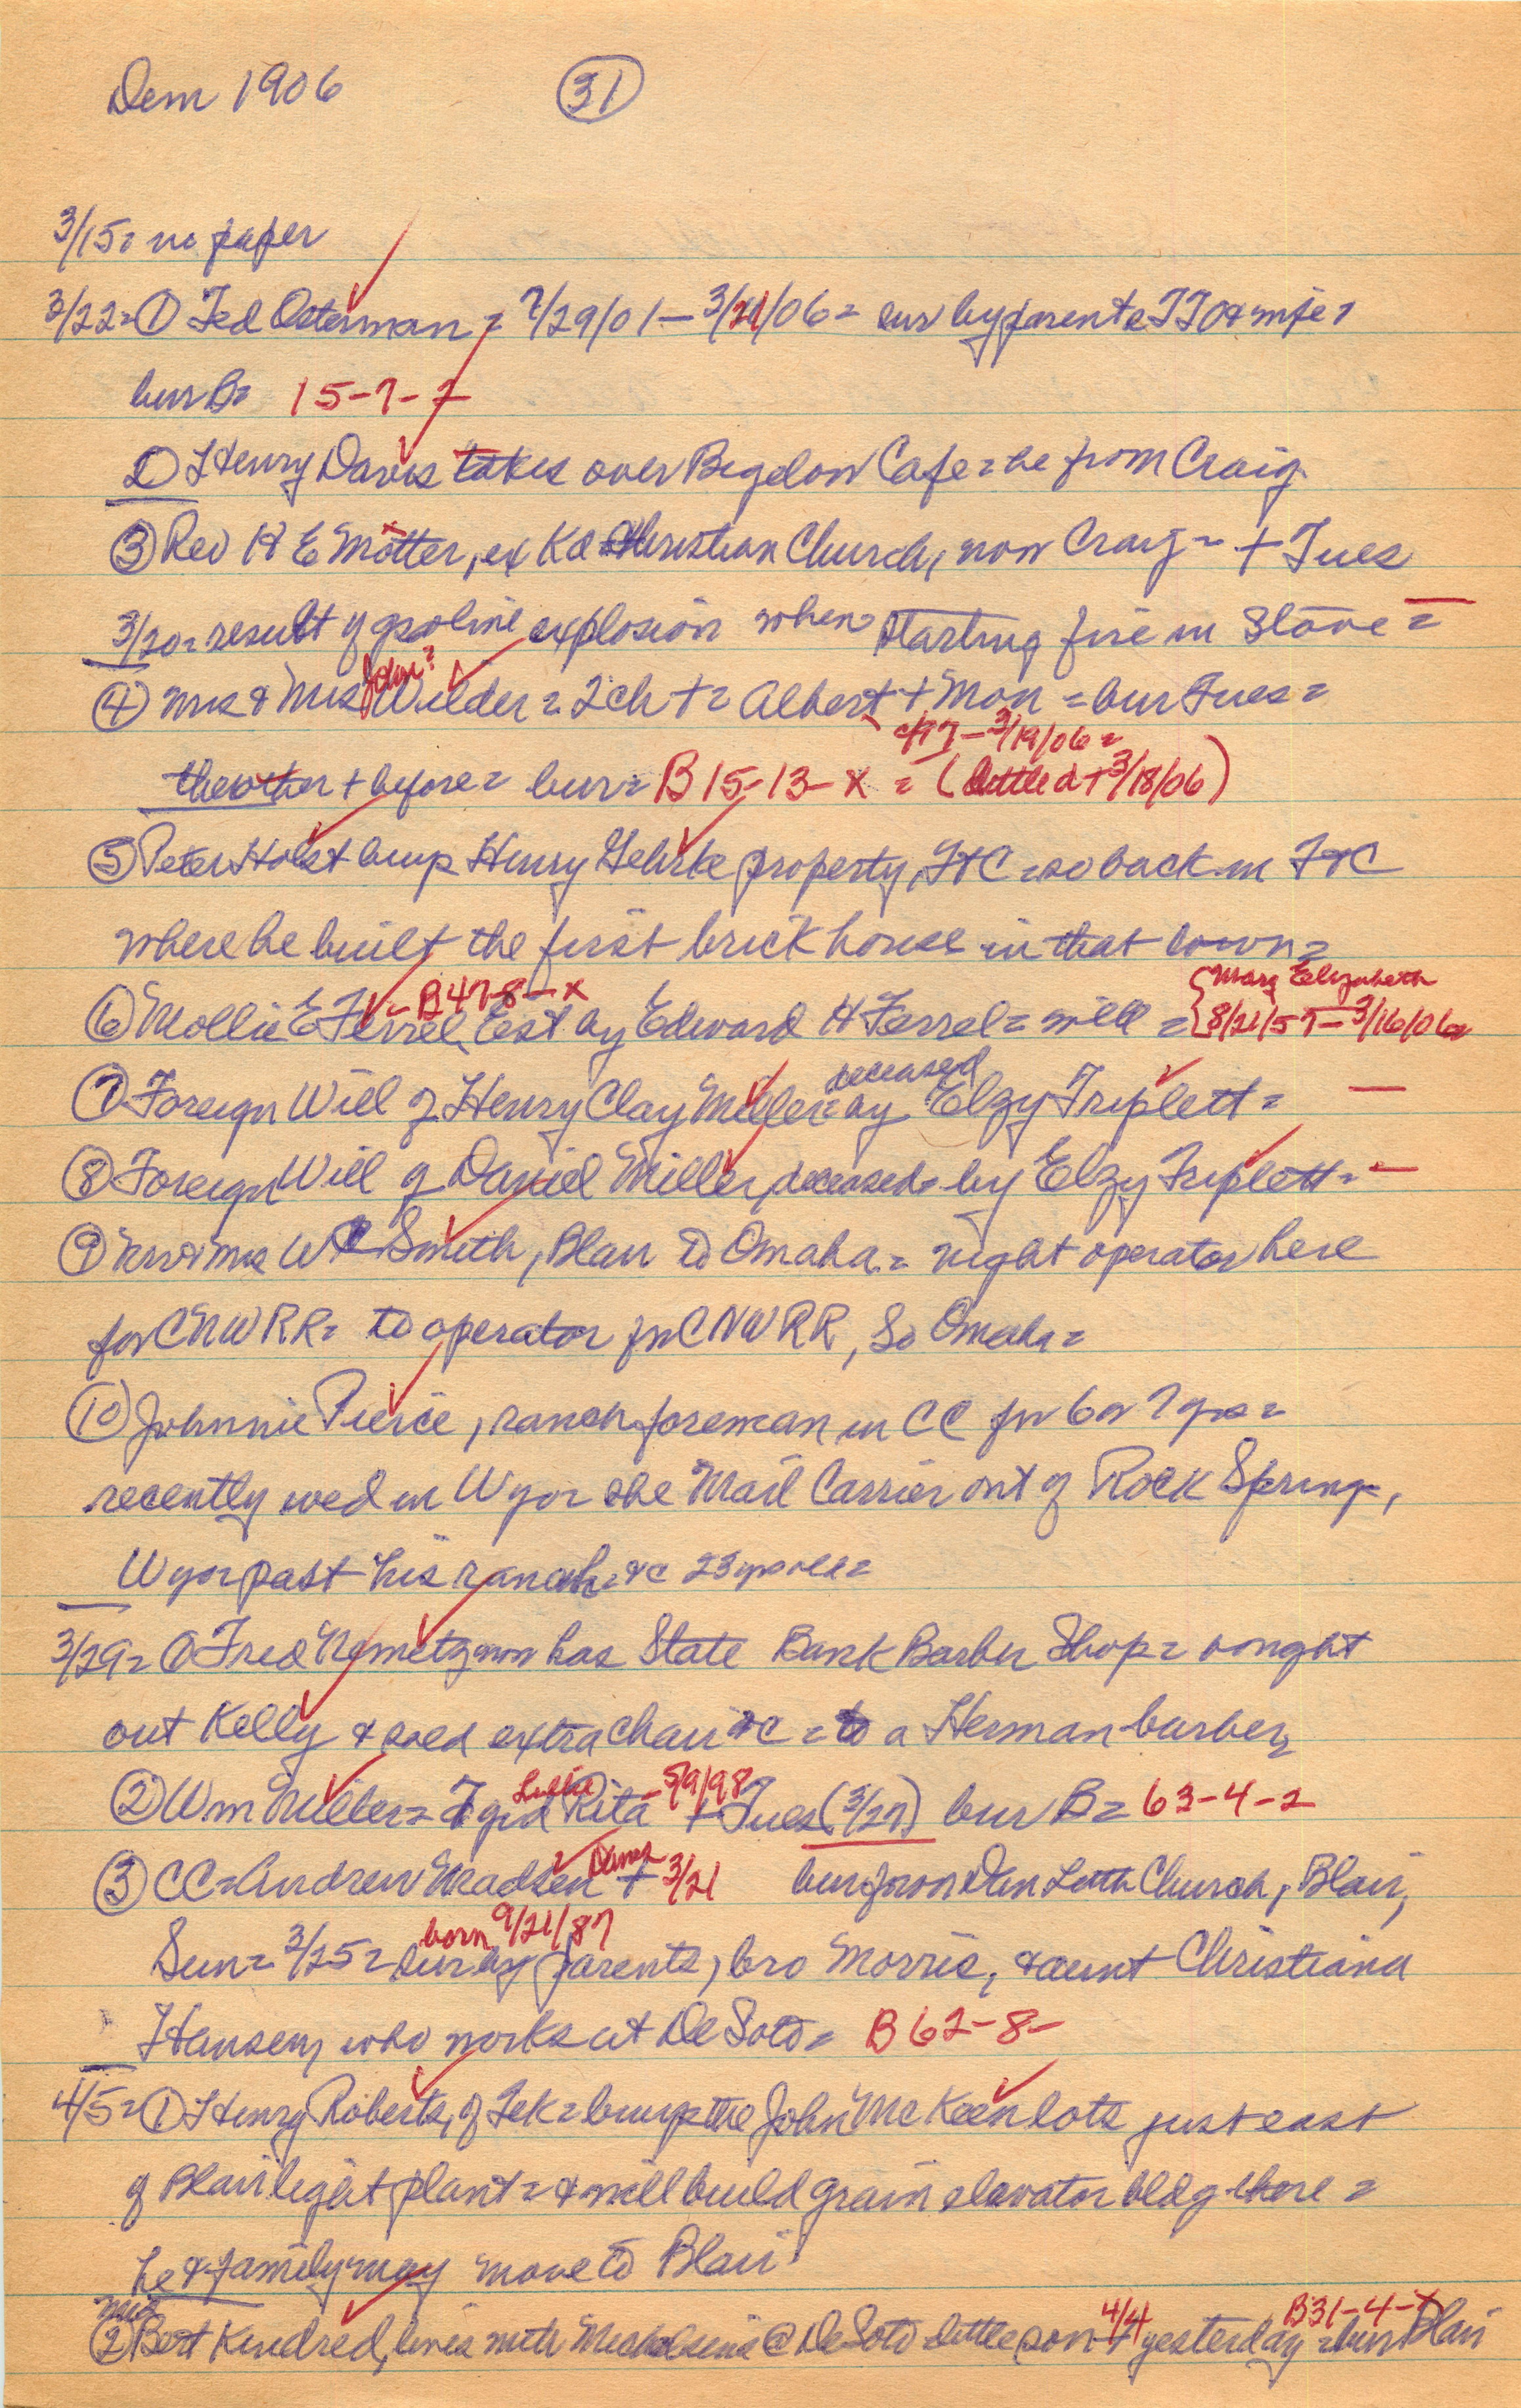 Dem 1906 31
3/15= no paper
3/22= ① Ted Osterman = 7/29/01 — 3/21/06= sur by parents TJO & wife=
bur B= 15-7-2
② Henry Davis takes over Bigelow Cafe= he from Craig
③ Rev H E Motter, ex Christian Church, now Craig = + Tues
3/20= result of gasoline explosion when starting fire in stove =
④ Mr & Mrs John? Wilder = 2 ch += Albert + Mon = bur Tues =
3/19/06=
the other + before= bur= B 15-13-x = (little d + 3/18/06)
⑤ Peter Holst buys Henry Gehrke property, FtC = so back in FtC
where he built the first brick house in that town=
B47-8-x Mary Elizabeth
⑥ Mollie E Ferrel, Est by Edward H Ferrel= will = 8/21/57-3/16/06=
⑦ Foreign Will of Henry Clay Miller= deceased by Elzy Triplett= —
⑧ Foreign Will of Daniel Miller, deceased= by Elzy Triplett= —
⑨ Mr & Mrs W Smith, Blair to Omaha = night operator here
for CNWRR= to operator for CNWRR, So Omaha=
⑩ Johnnie Pierce, ranch foreman in CC for 6 or 7 yrs=
recently wed in Wyo= she Mail Carrier out of Rock Springs,
Wyo= past his ranch= &c 23 yrs old=
3/29= ① Fred Nemetz now has State Bank Barber Shop= bought
out Kelly & sold extra chair &c = to a Herman barber,
② Wm Miller= 7 yr d Lullu Rita -5/9/98 + Tues (3/27) bur B= 63-4-2
③ CC= Andrew Madsen + 3/21 bur from Dan Luth Church, Blair,
born 9/21/87
Sun= 3/25= sur by parents, bro Morris, & aunt Christiana
Hansen, who works at DeSoto= B 62-8-
4/5= ① Henry Roberts, of Tek= buys the John McKeen lots just east
of Blair light plant= & will build grain elevator bldg there =
he & family may move to Blair
② Mrs Bert Kindred, lives with @ DeSoto= little son + 4/4 yesterday = bur Blair B31-4-x